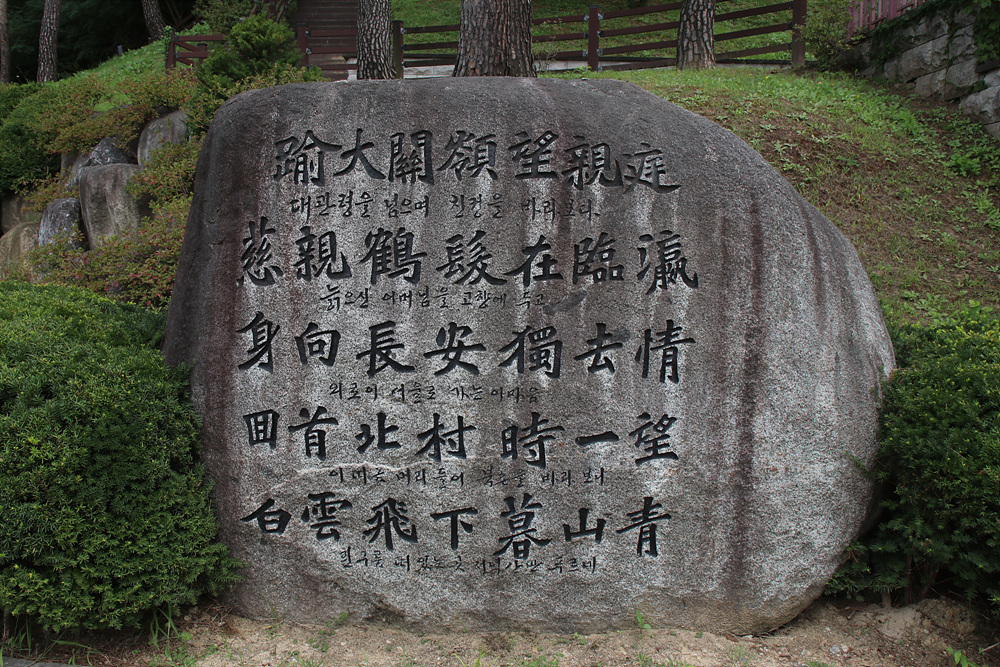 踰大關嶺望親庭
대관령을 넘으며 친정을 바라보다.
慈親鶴髮在臨瀛
늙으신 어머님을 고향에 두고
身向長安獨去情
외로이 서울로 가는 이마음
回首北村時一望
이따금 머리 들어 북촌을 바라보니
白雲飛下暮山青
흰구름 떠 있는 곳 저녁산만 푸르네